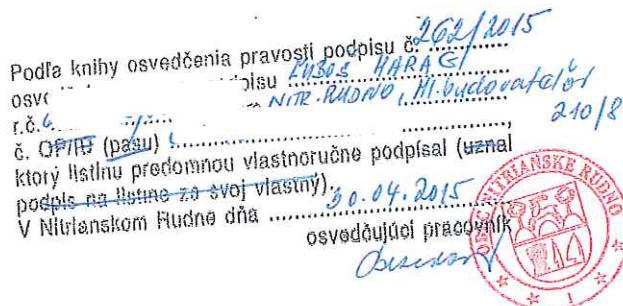 Podľa knihy osvedčenia pravosti podpisu č. 262/2015
osv pisu ĽUBOŠ HARAG
r.č. NITR. RUDNO, Ml. budovateľov
210/8
č. OP/RI (pasu)
ktorý listinu predomnou vlastnoručne podpísal (uznal
podpis na listine za svoj vlastný).
V Nitrianskom Rudne dňa 30.04.2015
osvedčujúci pracovník
OBEC NITRIANSKE RUDNO
1